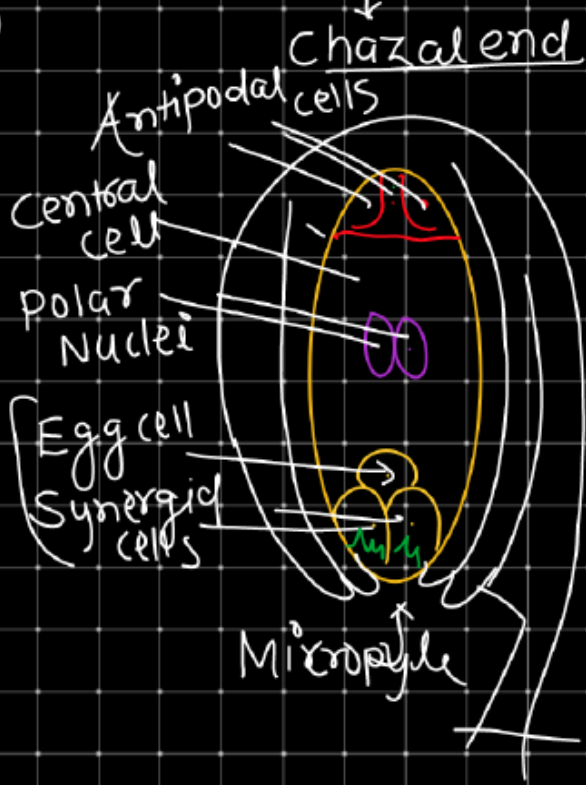 Chazal end
Antipodal cells
Central
cell
Polar
Nuclei
Egg cell
Synergid
cells
Micropyle